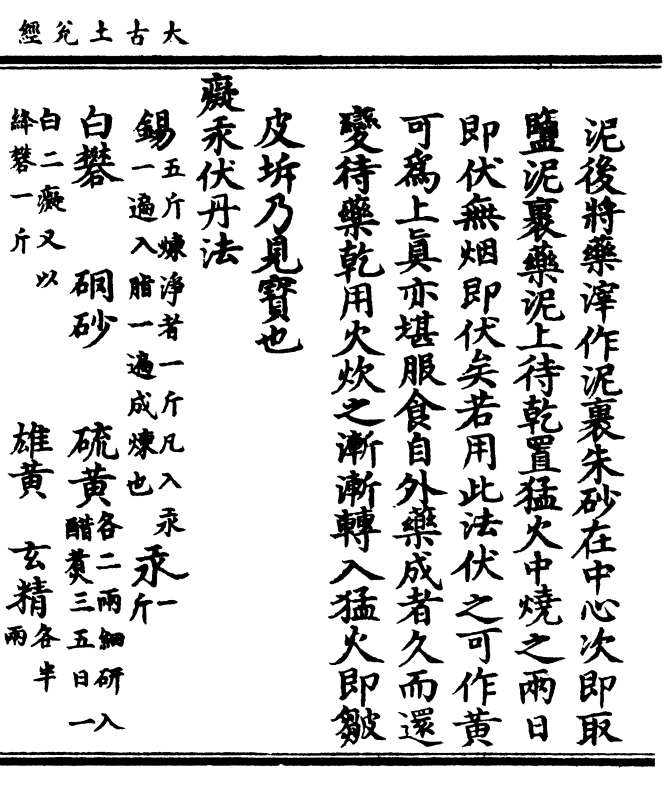 大古土兊經
泥後將藥滓作泥裹朱砂在中心次即取
鹽泥裹藥泥上待乾置猛火中燒之兩日
即伏無烟即伏矣若用此法伏之可作黃
可爲上眞亦堪服食自外藥成者久而還
變待藥乾用火炊之漸漸轉入猛火即皺
皮坼乃見寶也
癡汞伏丹法
錫五斤煉淨者一斤凡入汞一遍入脂一遍成煉也 汞一斤
白礬 硇砂 硫黃各二兩細研入醋煑三五日一
白二癡又以絳礬一斤 雄黃 玄精各半兩